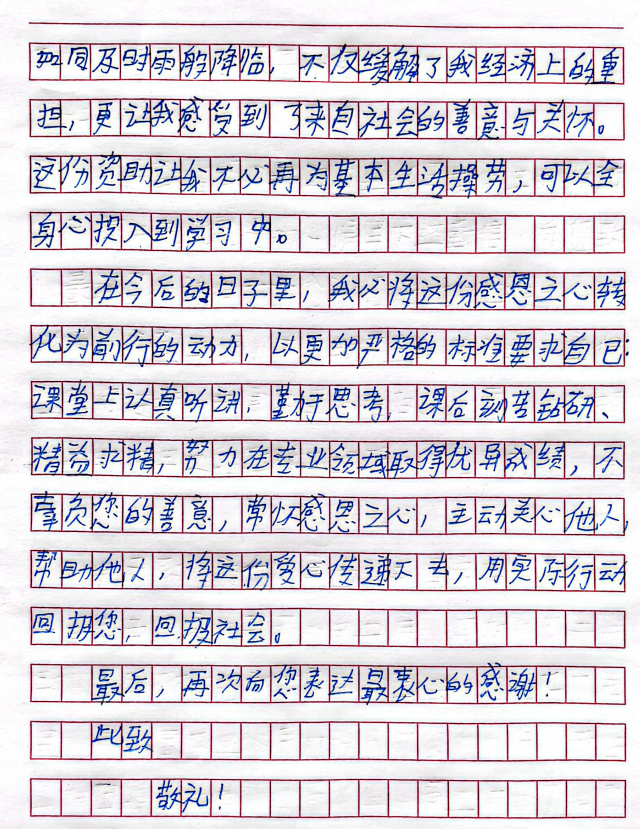 如同及时雨般降临，不仅缓解了我经济上的重
担，更让我感受到了来自社会的善意与关怀。
这份资助让我不必再为基本生活操劳，可以全
身心投入到学习中。
在今后的日子里，我必将这份感恩之心转
化为前行的动力，以更加严格的标准要求自己：
课堂上认真听讲，勤于思考，课后刻苦钻研、
精益求精，努力在专业领域取得优异成绩，不
辜负您的善意，常怀感恩之心，主动关心他人，
帮助他人，将这份爱心传递下去，用实际行动
回报您，回报社会。
最后，再次向您表达最衷心的感谢！
此致
敬礼！